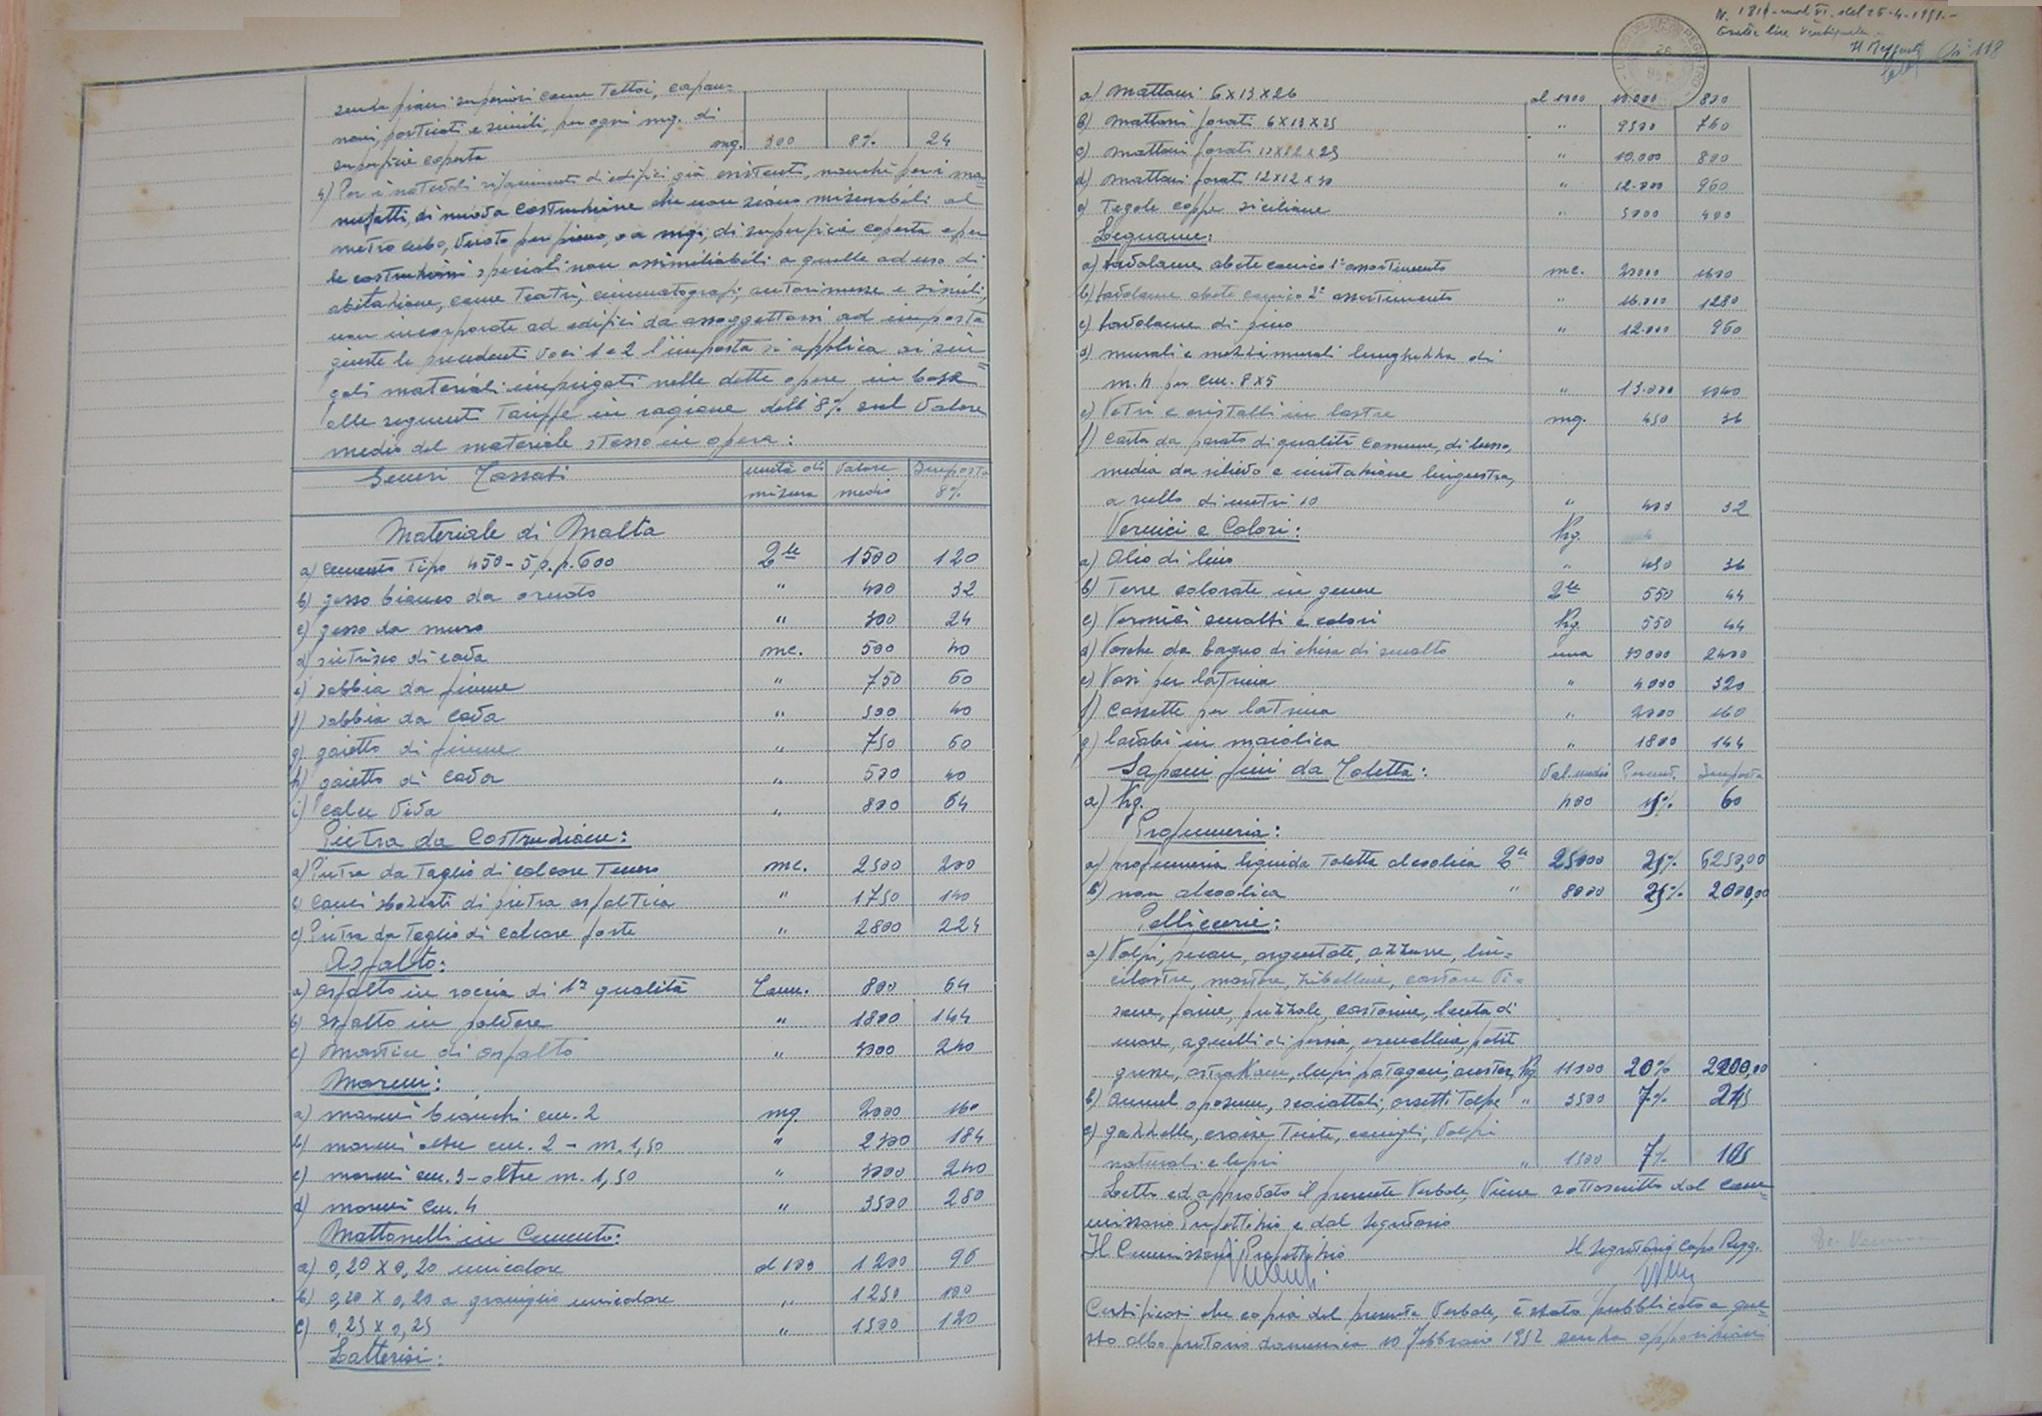 senza piani superiori come Tettoi, capan=
noni porticati e simili, per ogni mq. di
superficie coperta mq. 300 8% 24
4) Per i materiali rifacimenti di edifici già esistenti, nonché per i ma=
nufatti, di nuova costruzione che non siano misurabili al
metro cubo, vuoto per pieno, o a mq, di superficie coperta e per
le costruzioni speciali non assimilabili a quelle ad uso di
abitazione, come Teatri, cinematografi, autorimesse e simili,
non incorporate ad edifici da assoggettarsi ad imposta
giuste le precedenti voci 1 e 2 l'imposta si applica ai sin=
goli materiali impiegati nelle dette opere in base
alle seguenti Tariffe in ragione dell'8% sul valore
medio del materiale stesso in opera:
Generi Tassati unità di misura Valore medio Imposta 8%
Materiale di Malta
a) cemento Tipo 450 - 5 p.p. 600 Q.le 1500 120
b) gesso bianco da ornato " 400 32
c) gesso da muro " 300 24
d) pietrisco di cava mc. 500 40
e) sabbia da fiume " 750 60
f) sabbia da cava " 500 40
g) gaietto di fiume " 750 60
h) gaietto di cava " 500 40
i) calce viva " 800 64
Pietra da Costruzione:
a) Pietra da Taglio di calcare Tenero mc. 2500 200
b) Conci sbozzati di pietra asfaltica " 1750 140
c) Pietra da Taglio di calcare forte " 2800 224
Asfalto:
a) asfalto in roccia di 1ª qualità Tonn. 800 64
b) asfalto in polvere " 1800 144
c) Mastice di asfalto " 3000 240
Marmi:
a) marmi bianchi cm. 2 mq. 2000 160
b) marmi oltre cm. 2 - m. 1,50 " 2300 184
c) marmi cm. 3 - oltre m. 1,50 " 3000 240
d) marmi cm. 4 " 3500 280
Mattonelli in Cemento:
a) 0,20 x 0,20 unicolore al 100 1200 96
b) 0,20 x 0,20 a graniglia unicolore " 1250 100
c) 0,25 x 0,25 " 1500 120
Latterizi:
N. 1814 - mod. VI - del 26-4-1951.-
Esatte lire
a) Mattoni 6x13x26 al 1000 10.000 800
b) Mattoni forati 6x13x25 " 9500 760
c) Mattoni forati " 10.000 800
d) Mattoni forati 12x12x30 " 12.000 960
e) Tegole coppe siciliane " 5000 400
Legname:
a) tavolame abete conico 1° assortimento mc. 20000 1600
b) tavolame abete conico 2° assortimento " 16.000 1280
c) tavolame di pino " 12.000 960
d) murali e mezzi murali lunghezza di
m. 4 per cm. 8x5 " 13.000 1040
e) Vetri e cristalli in lastre mq. 450 36
f) Carta da parato di qualità comune, di lusso,
media da rilievo e imitazione linguestra,
a rullo di metri 10 " 400 32
Vernici e Colori: Kg.
a) Olio di lino " 450 36
b) Terre colorate in genere Q.le 550 44
c) Vernici smalti e colori Kg. 550 44
d) Vasche da bagno di ghisa di smalto una 30000 2400
e) Vasi per latrina " 4.000 320
f) Cassette per latrina " 2000 160
g) lavabi in maiolica " 1800 144
Saponi fini da Toletta: Val. medio Percent. Imposta
a) Kg. 400 15% 60
Profumeria:
a) profumeria liquida Toletta alcoolica Q.le 25000 25% 6250,00
b) non alcoolica " 8000 25% 2000,00
Pelliccerie:
a) Volpi, pecan, argentate, azzurre, cin=
cillastre, martore, zibelline, castore vi=
sone, faine, puzzole, castorine, lontra di
mare, agnelli di persia, ermellino, petit
grisse, astrakane, lupi patagoni, Kg. 11000 20% 2200,00
b) opossum, scoiattoli, orsetti Talpe " 3500 7% 245
c) gazzelle, conigli, volpi
naturali e lepri " 1500 7% 105
Letto ed approvato il presente Verbale, viene sottoscritto dal com=
missario Prefettizio e dal Segretario
Il Commissario Prefettizio Il Segretario Capo Regg.
Certificasi che copia del presente Verbale, è stata pubblicata a que=
sto albo pretorio domenica 10 Febbraio 1952 senza opposizioni